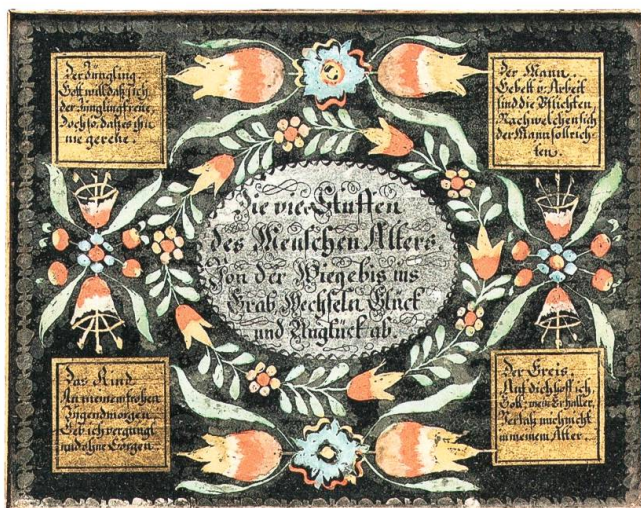 Der Jüngling.
Gott will daß sich
der Jüngling freue,
Doch so, daß es ihn
nie gereue.
Der Mann.
Gebett u. Arbeit
sind die Pflichten,
Nach welchen sich
der Mann soll rich-
ten.
Die vier Stuffen
des Menschen Alters.
Von der Wiege bis ins
Grab Wechseln Glück
und Unglück ab.
Das Kind
An meinem frohen
Jugendmorgen
Leb ich vergnügt
und ohne Sorgen.
Der Greis.
Auf dich hoff ich
Gott, mein Erhalter,
Verlaß mich nicht
in meinem Alter.